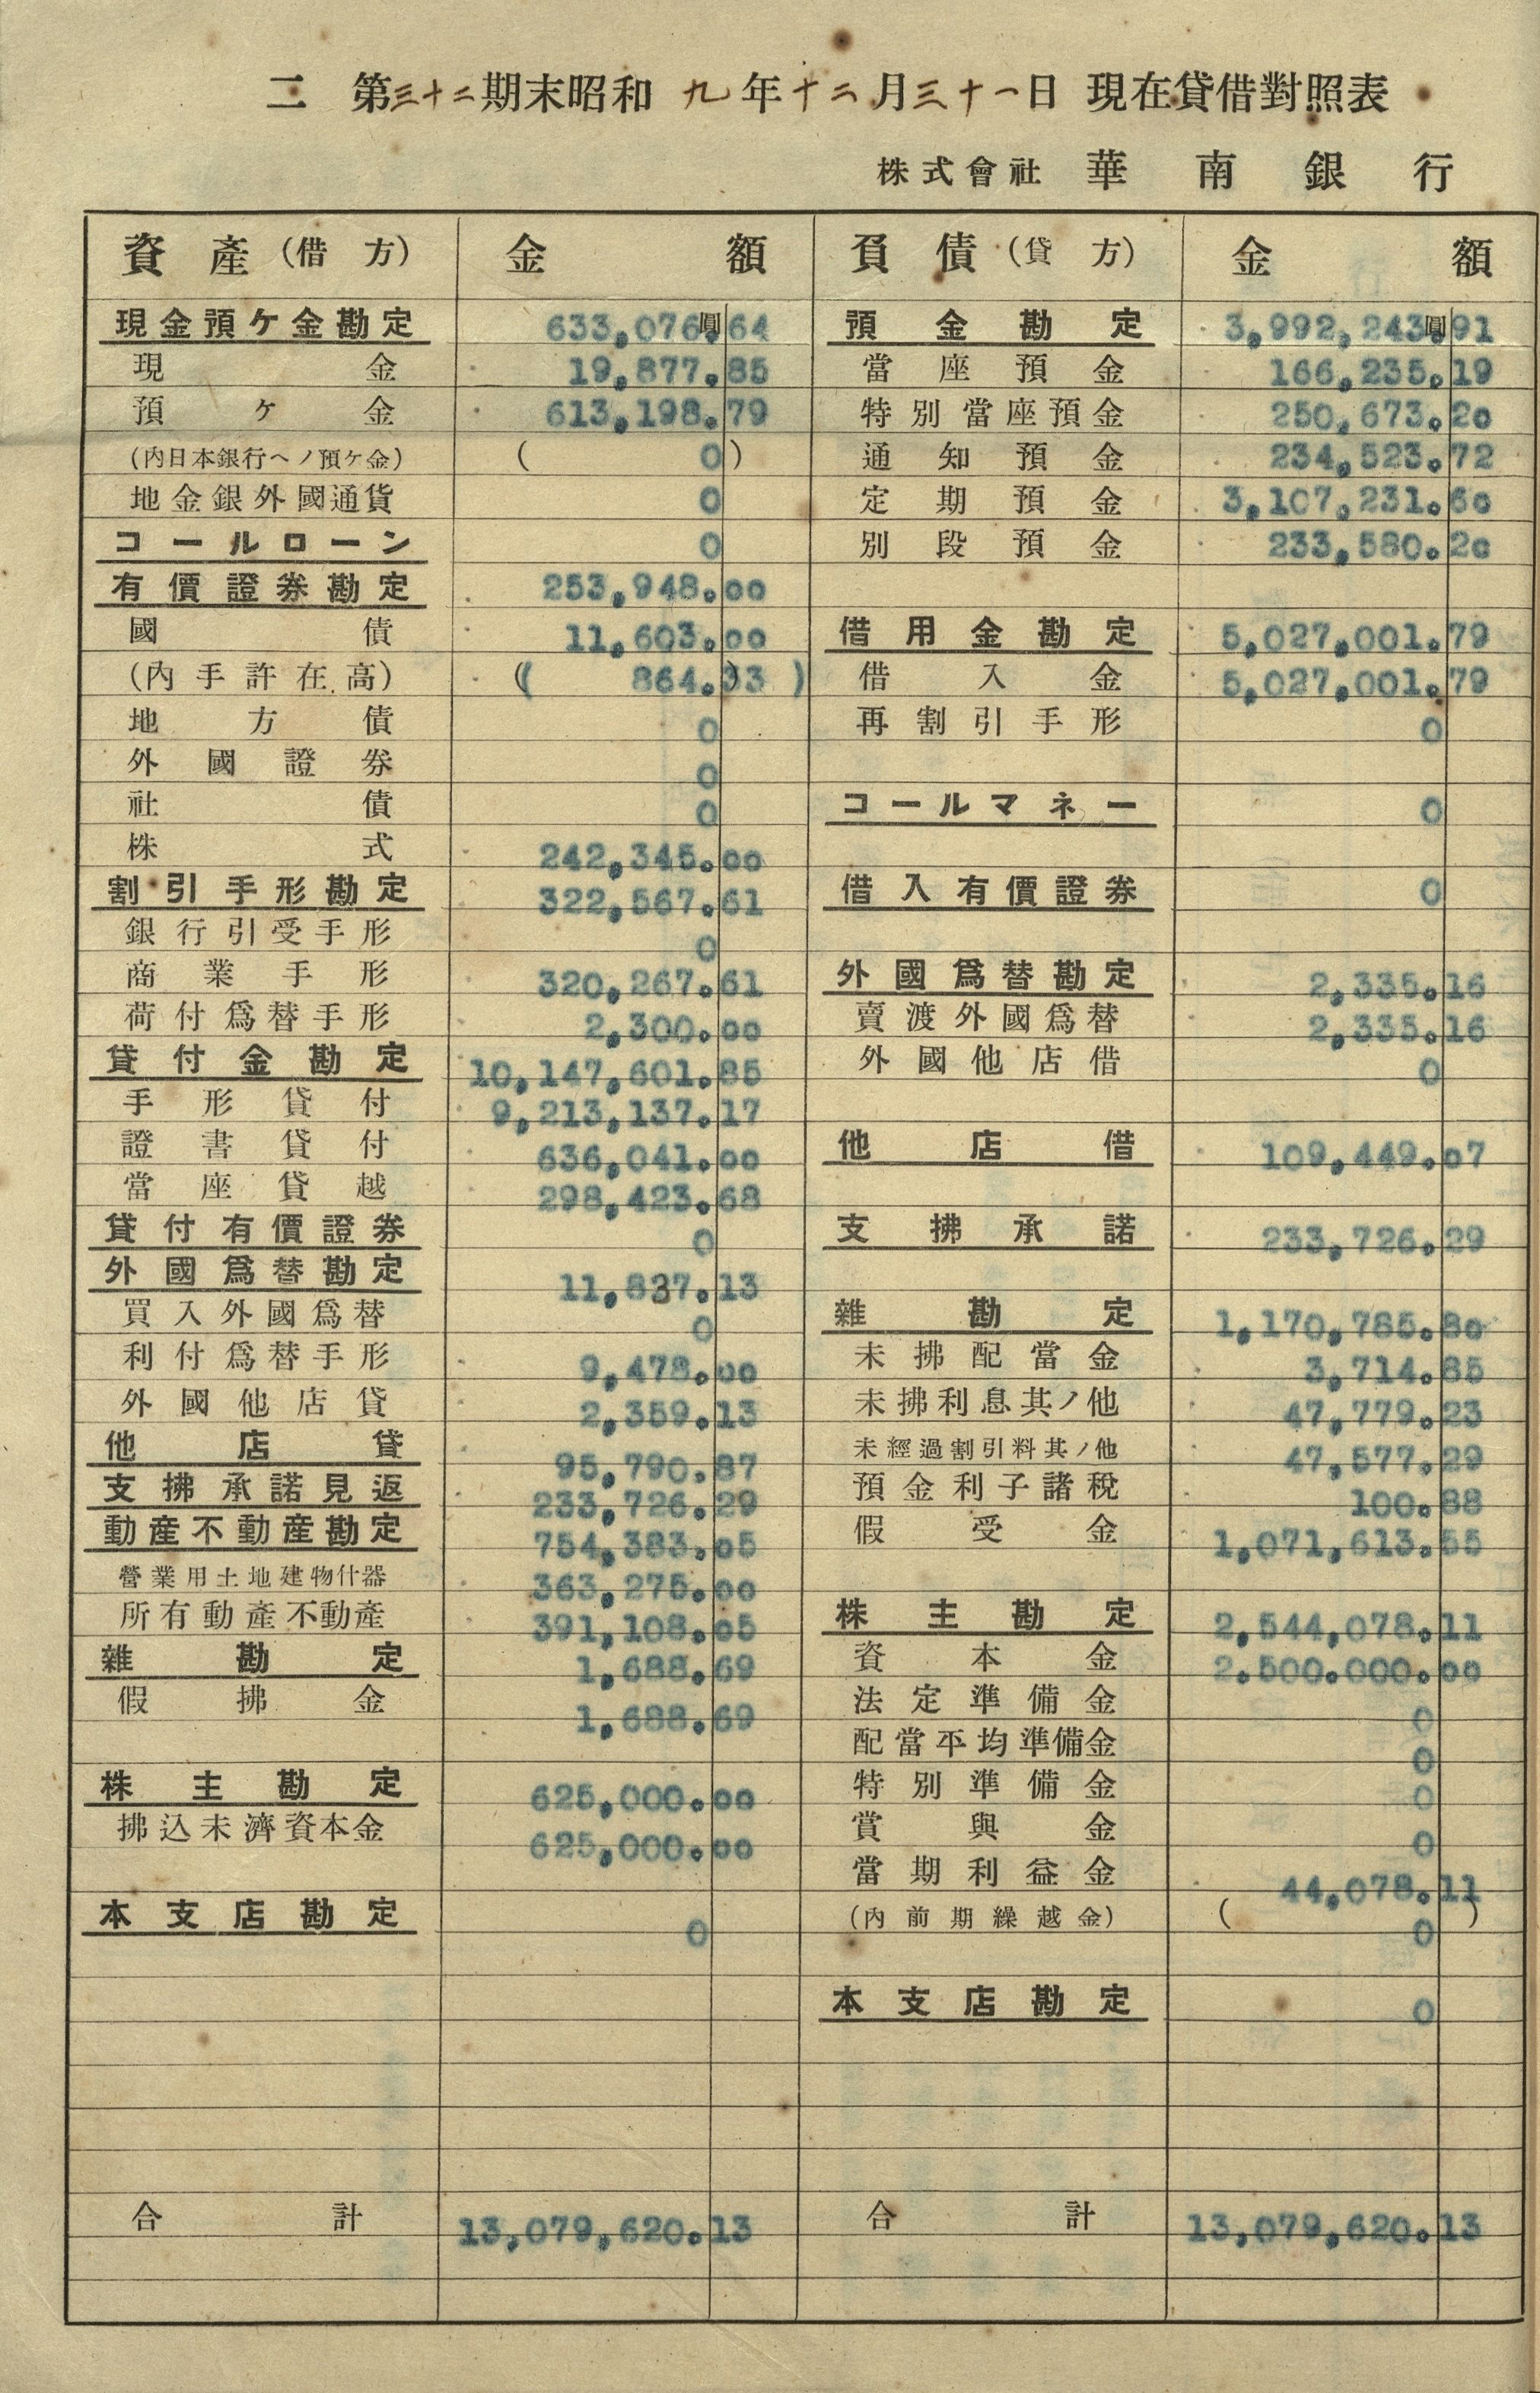 二 第三十二期末昭和 九年十二月三十一日 現在貸借對照表
株式會社 華南銀行
資產(借方) 金額 負債(貸方) 金額
現金預ケ金勘定 633,076.圓64 預金勘定 3,992,243.圓91
現金 19,877.85 當座預金 166,235.19
預ケ金 613,198.79 特別當座預金 250,673.20
(內日本銀行ヘノ預ケ金) (0) 通知預金 234,523.72
地金銀外國通貨 0 定期預金 3,107,231.60
コールローン 0 別段預金 233,580.20
有價證券勘定 253,948.00
國債 11,603.00 借用金勘定 5,027,001.79
(內手許在高) (864.33) 借入金 5,027,001.79
地方債 0 再割引手形 0
外國證券 0
社債 0 コールマネー 0
株式 242,345.00
割引手形勘定 322,567.61 借入有價證券 0
銀行引受手形 0
商業手形 320,267.61 外國爲替勘定 2,335.16
荷付爲替手形 2,300.00 賣渡外國爲替 2,335.16
貸付金勘定 10,147,601.85 外國他店借 0
手形貸付 9,213,137.17
證書貸付 636,041.00 他店借 109,449.07
當座貸越 298,423.68
貸付有價證券 0 支拂承諾 233,726.29
外國爲替勘定 11,837.13
買入外國爲替 0 雜勘定 1,170,785.80
利付爲替手形 9,478.00 未拂配當金 3,714.85
外國他店貸 2,359.13 未拂利息其ノ他 47,779.23
他店貸 95,790.87 未經過割引料其ノ他 47,577.29
支拂承諾見返 233,726.29 預金利子諸稅 100.88
動產不動產勘定 754,383.05 假受金 1,071,613.55
營業用土地建物什器 363,275.00
所有動產不動產 391,108.05 株主勘定 2,544,078.11
雜勘定 1,688.69 資本金 2.500.000.00
假拂金 1,688.69 法定準備金 0
配當平均準備金 0
株主勘定 625,000.00 特別準備金 0
拂込未濟資本金 625,000.00 賞與金 0
當期利益金 44,078.11
本支店勘定 0 (內前期繰越金) (0)
本支店勘定 0
合計 13,079,620.13 合計 13,079,620.13